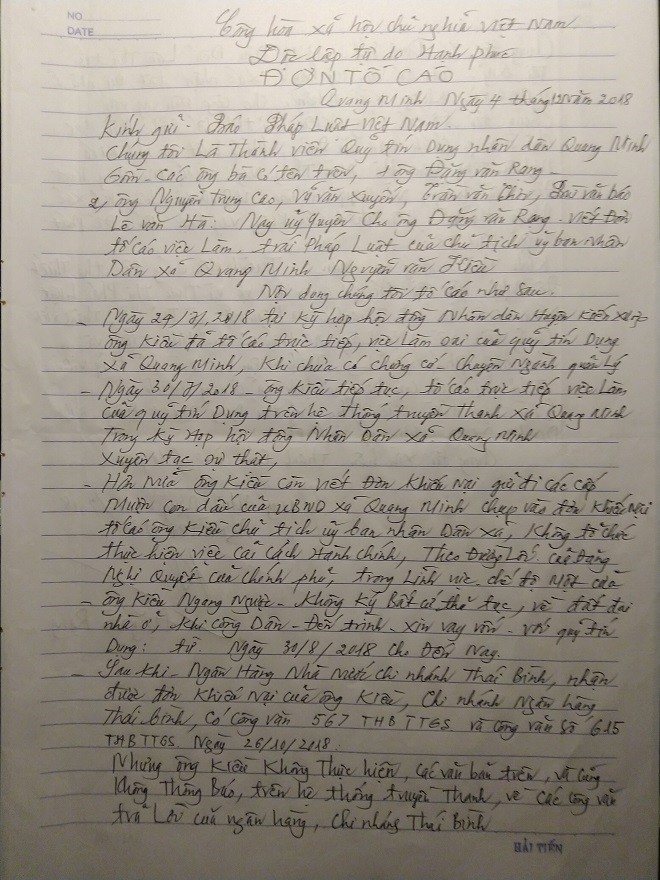 NO
DATE
Cộng hòa xã hội chủ nghĩa việt Nam
Độc lập tự do Hạnh phúc
ĐƠN TỐ CÁO
Quang Minh Ngày 4 tháng 12 Năm 2018
Kính gửi. Báo Pháp Luật việt Nam.
Chúng tôi Là Thành viên Quỹ tín Dụng nhân dân Quang Minh
Gồm các ông bà có tên trên, 1 ông Đặng văn Rang
2, ông Nguyễn Trung Cao, Vũ văn Xuyên, Trần văn Thìn, văn
Lê văn Hà: Nay uỷ quyền Cho ông Đặng văn Rang. viết Đơn
tố cáo việc Làm. trái Pháp Luật của chủ tịch uỷ ban Nhân
Dân xã Quang Minh Nguyễn văn Kiều
Nội dung chúng tôi tố cáo như sau.
- Ngày 29/7/2018 tại kỳ họp hội đồng Nhân dân Huyện Kiến Xương
ông Kiều đã tố cáo trực tiếp, việc Làm sai của quỹ tín Dụng
xã Quang Minh, khi chưa có chứng cớ - chuyên Ngành quản Lý
- Ngày 30/7/2018 - ông Kiều tiếp tục, tố cáo trực tiếp việc Làm
của quỹ tín Dụng trên hệ thống truyền Thanh xã Quang Minh
Trong kỳ Họp hội đồng Nhân Dân xã Quang Minh
xuyên tạc sự thật,
- Hơn Nữa ông Kiều còn viết Đơn khiếu Nại gửi đi các cấp
Mượn con dấu của UBND xã Quang Minh chụp vào đơn khiếu Nại
tố cáo ông Kiều chủ tịch uỷ ban nhân Dân xã, Không tổ chức
thực hiện việc cải cách Hành chính, Theo Đường Lối của Đảng
Nghị Quyết của chính phủ, trong Lĩnh vực chế độ Một cửa
- ông Kiều Ngang Ngược - Không Ký Bất cứ thủ tục, về đất đai
nhà ở, khi công Dân - Đến trình - xin vay vốn - với quỹ tín
Dụng: từ Ngày 30/8/2018 cho đến Nay.
- Sau khi - Ngân Hàng Nhà Nước chi nhánh Thái Bình, nhận
được đơn khiếu Nại của ông Kiều, Chi nhánh Ngân hàng
Thái bình, có công văn 567 THB TTGS và công văn số 615
THB TTGS Ngày 26/10/2018:
Nhưng ông Kiều Không Thực hiện, các văn bản trên, và cũng
Không Thông Báo, trên hệ thống truyền Thanh, về các công văn
trả Lời của ngân hàng, chi nhánh Thái Bình
HẢI TIẾN